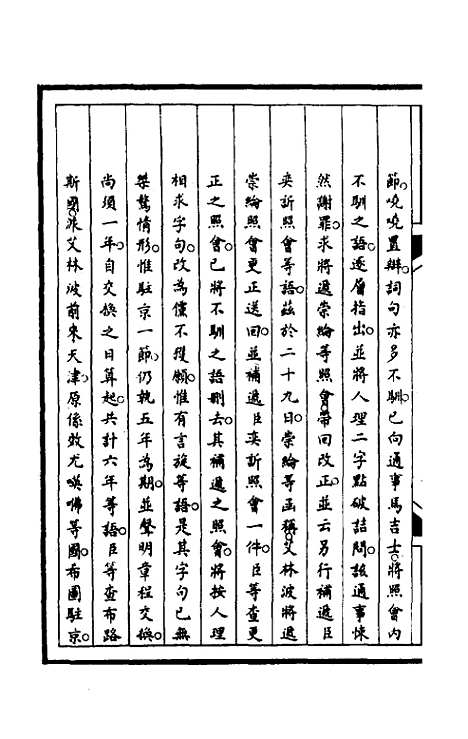 節。嘵嘵置辯。詞句亦多不馴。已向通事馬吉士。將照會內
不馴之語。逐層指出。並將人理二字點破詰問。該通事悚
然謝罪。求將遞崇綸等照會。帶回改正。並云另行補遞臣
奕訢照會等語。茲於二十九日。崇綸等函稱。艾林波將遞
崇綸照會更正送回。並補遞臣奕訢照會一件。臣等查更
正之照會。已將不馴之語刪去。其補遞之照會。將按人理
相求字句。改為儻不獲願。惟有言旋等語。是其字句已無
桀驁情形。惟駐京一節。仍執五年為期。並聲明章程交換。
尚須一年。自交換之日算起。共計六年等語。臣等查布路
斯國派艾林波前來天津。原係效尤嘆咈等國。布圖駐京。